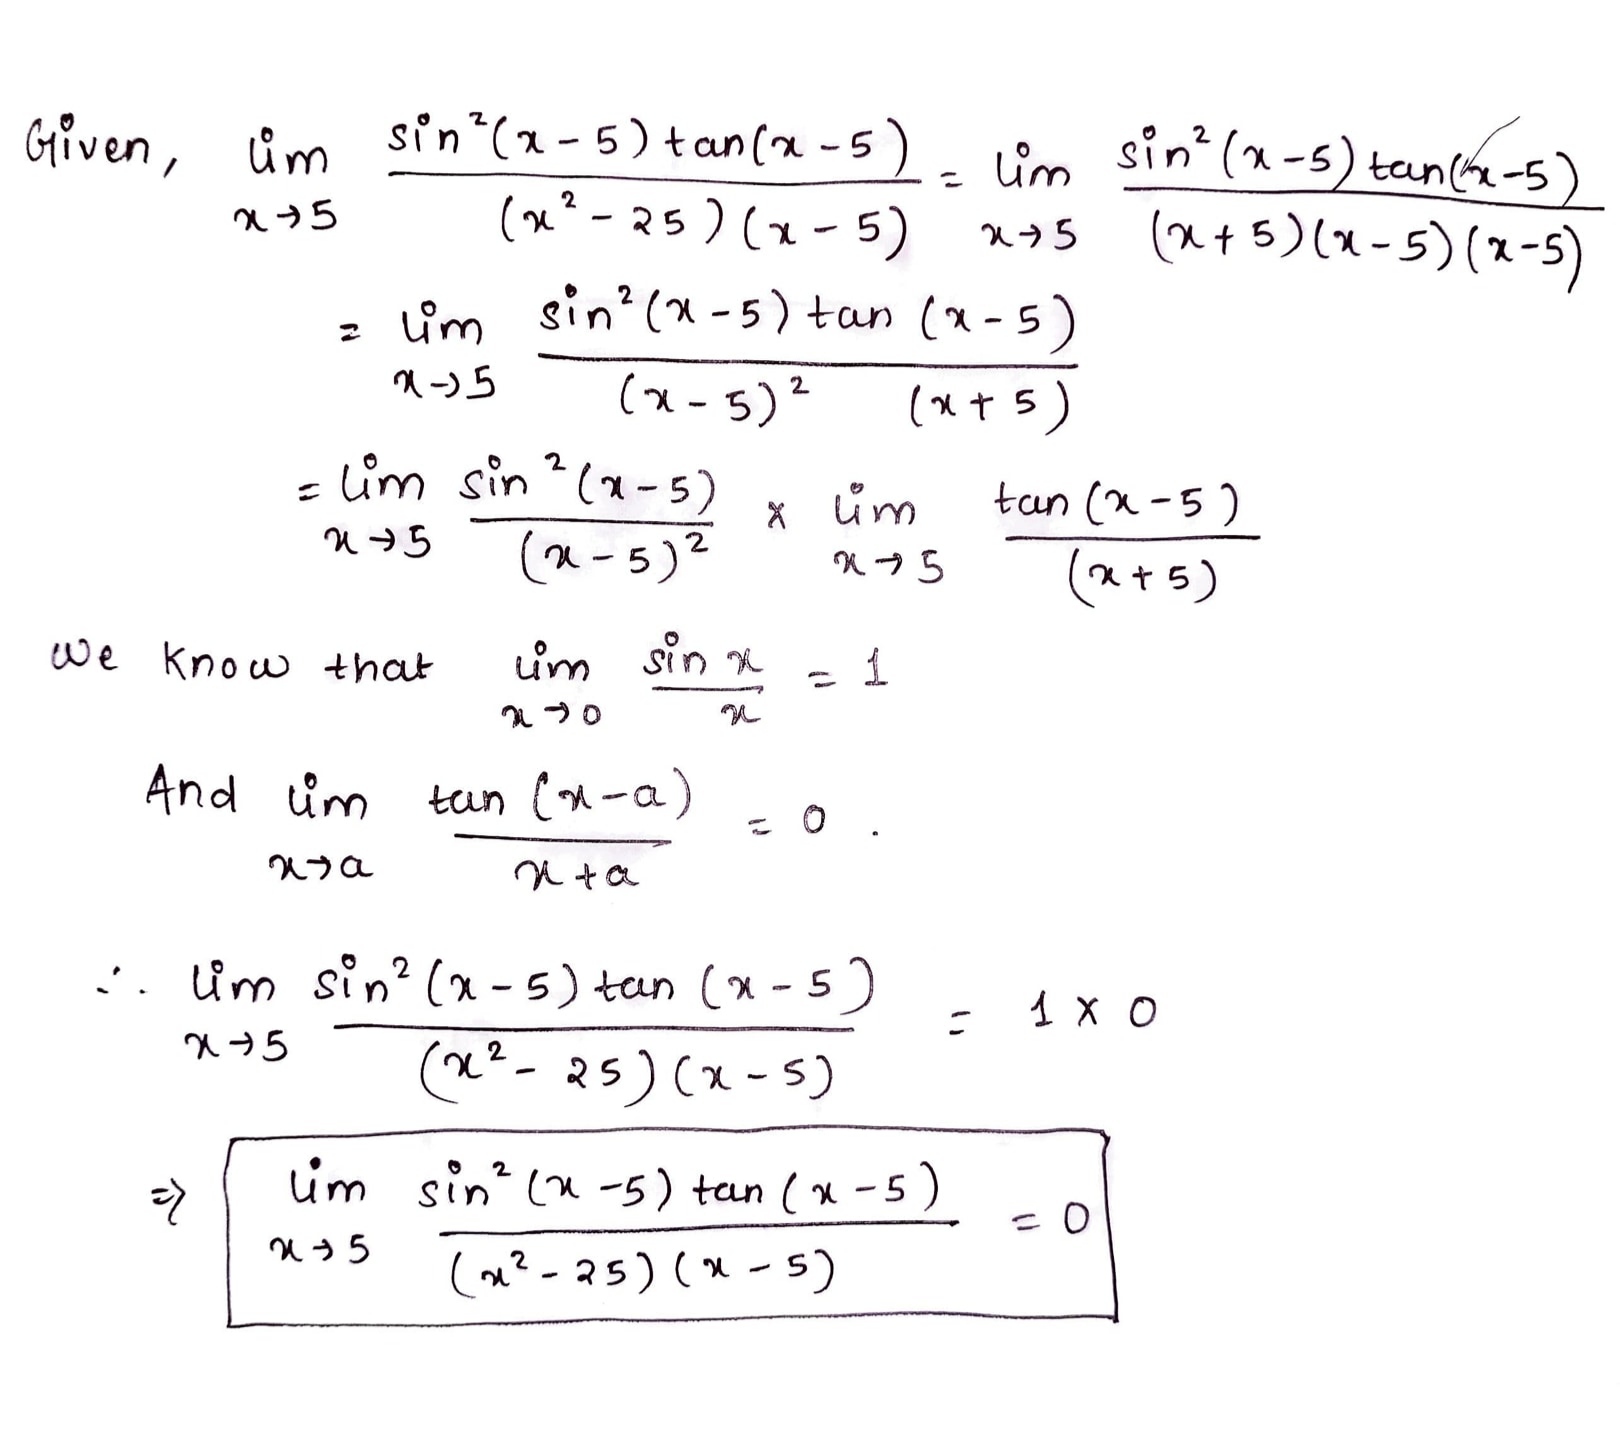 Given, lim x→5 sin²(x-5)tan(x-5) / (x²-25)(x-5) = lim x→5 sin²(x-5)tan(x-5) / (x+5)(x-5)(x-5)
= lim x→5 sin²(x-5)tan(x-5) / (x-5)² (x+5)
= lim x→5 sin²(x-5) / (x-5)² × lim x→5 tan(x-5) / (x+5)
We know that lim x→0 sin x / x = 1
And lim x→a tan(x-a) / x+a = 0.
∴ lim x→5 sin²(x-5)tan(x-5) / (x²-25)(x-5) = 1 × 0
⇒ lim x→5 sin²(x-5)tan(x-5) / (x²-25)(x-5) = 0